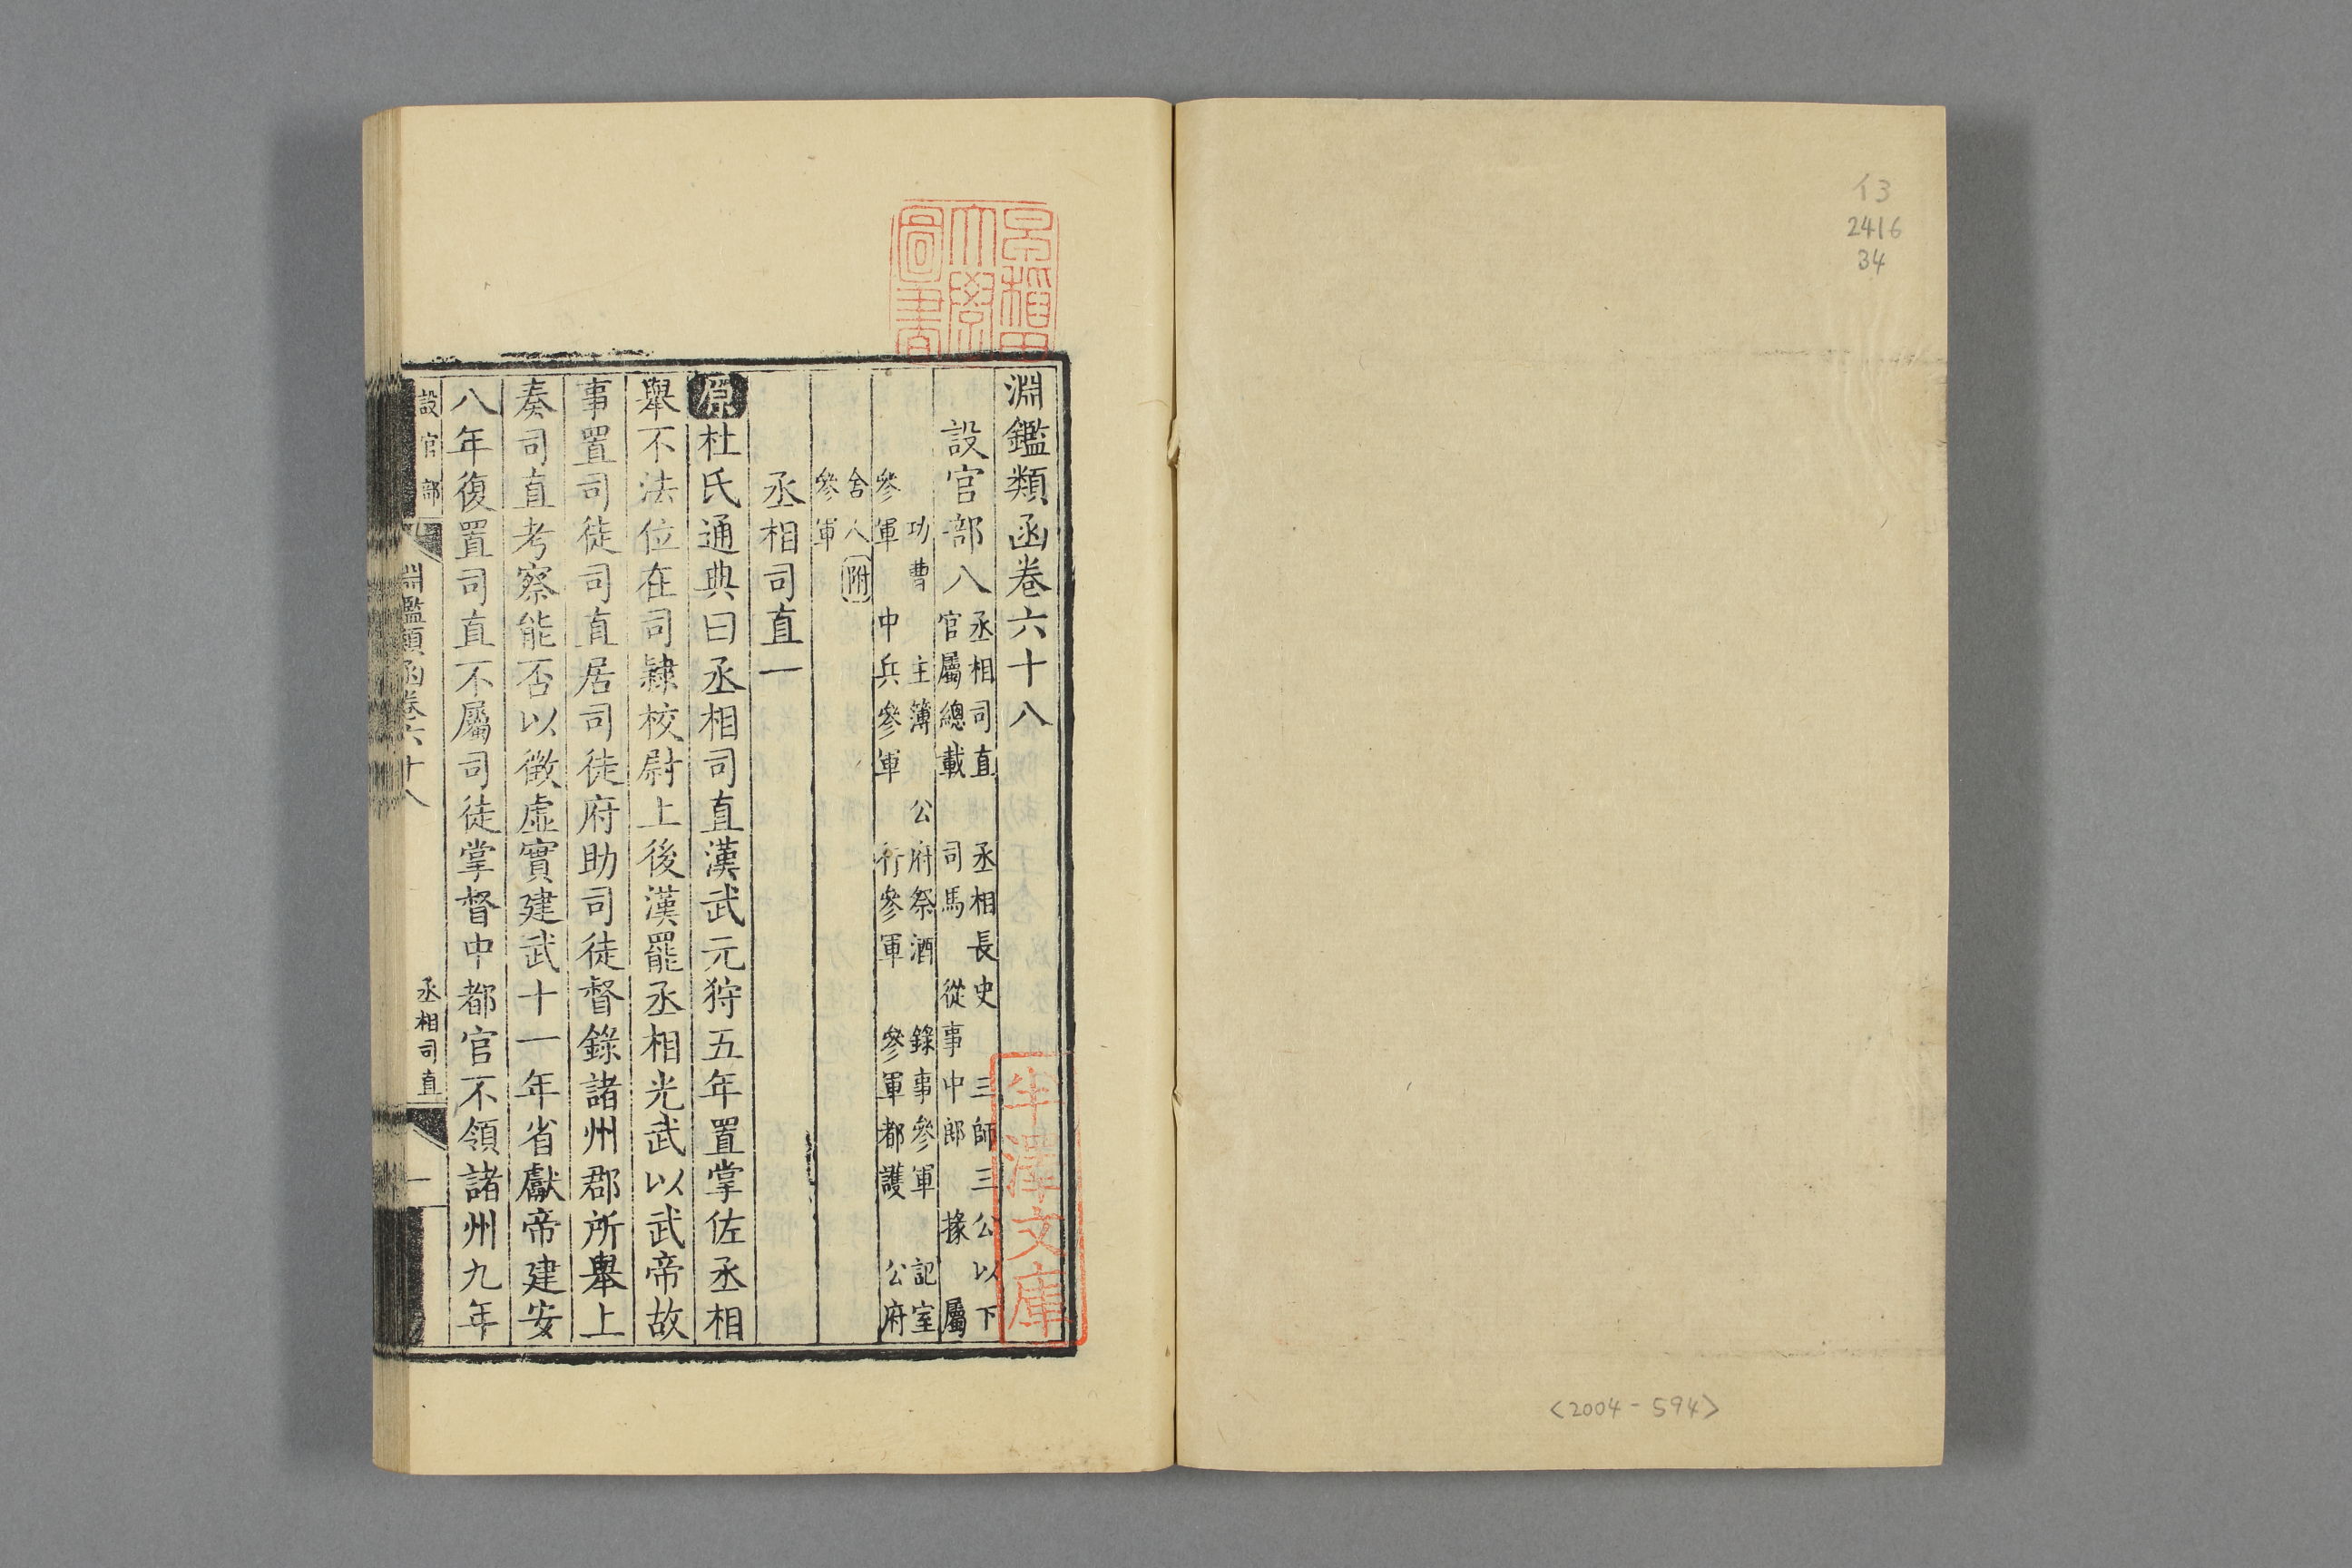 イ3
2416
34
<2004-594>
早稲田
大學
圖書
淵鑑類函卷六十八
設官部八 丞相司直 丞相長史 三師三公以下
官屬總載 司馬 從事中郎 掾屬
功曹 主簿 公府祭酒 錄事參軍 記室
參軍 中兵參軍 行參軍 參軍都護 公府
舍人附
參軍
丞相司直一
原杜氏通典曰丞相司直漢武元狩五年置掌佐丞相
舉不法位在司隸校尉上後漢罷丞相光武以武帝故
事置司徒司直居司徒府助司徒督錄諸州郡所舉上
奏司直考察能否以徵虛實建武十一年省獻帝建安
八年復置司直不屬司徒掌督中都官不領諸州九年
設官部
淵鑑類函卷六十八
丞相司直
一
半澤文庫